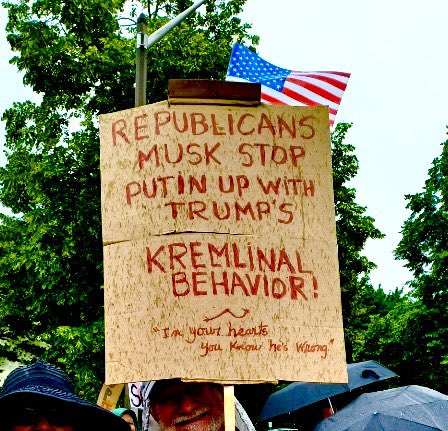 REPUBLICANS
MUSK STOP
PUTIN UP WITH
TRUMP'S
KREMLINAL
BEHAVIOR!
"In your hearts
you know he's wrong"